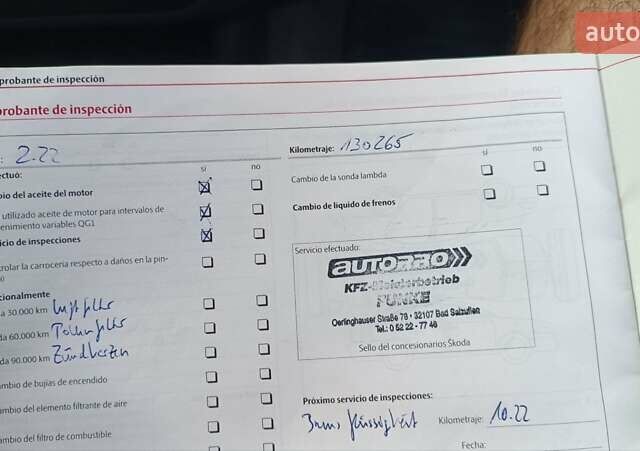 auto
probante de inspección
probante de inspección
: 2.22
Kilometraje: 130265
ectuó:
sí no
sí no
bio del aceite del motor
Cambio de la sonda lambda
utilizado aceite de motor para intervalos de
enimiento variables QG1
Cambio de líquido de frenos
icio de inspecciones
rolar la carrocería respecto a daños en la pin-
Servicio efectuado:
AUTOPRO
KFZ-Meisterbetrieb
FUNKE
Oerlinghauser Straße 78 · 32107 Bad Salzuflen
Tel.: 0 52 22 - 77 46
Sello del concesionario Škoda
cionalmente
da 30.000 km Luftfilter
da 60.000 km Pollenfilter
da 90.000 km Zündkerzen
ambio de bujías de encendido
ambio del elemento filtrante de aire
ambio del filtro de combustible
Próximo servicio de inspecciones:
Brems flüssigkeit Kilometraje: 10.22
Fecha: